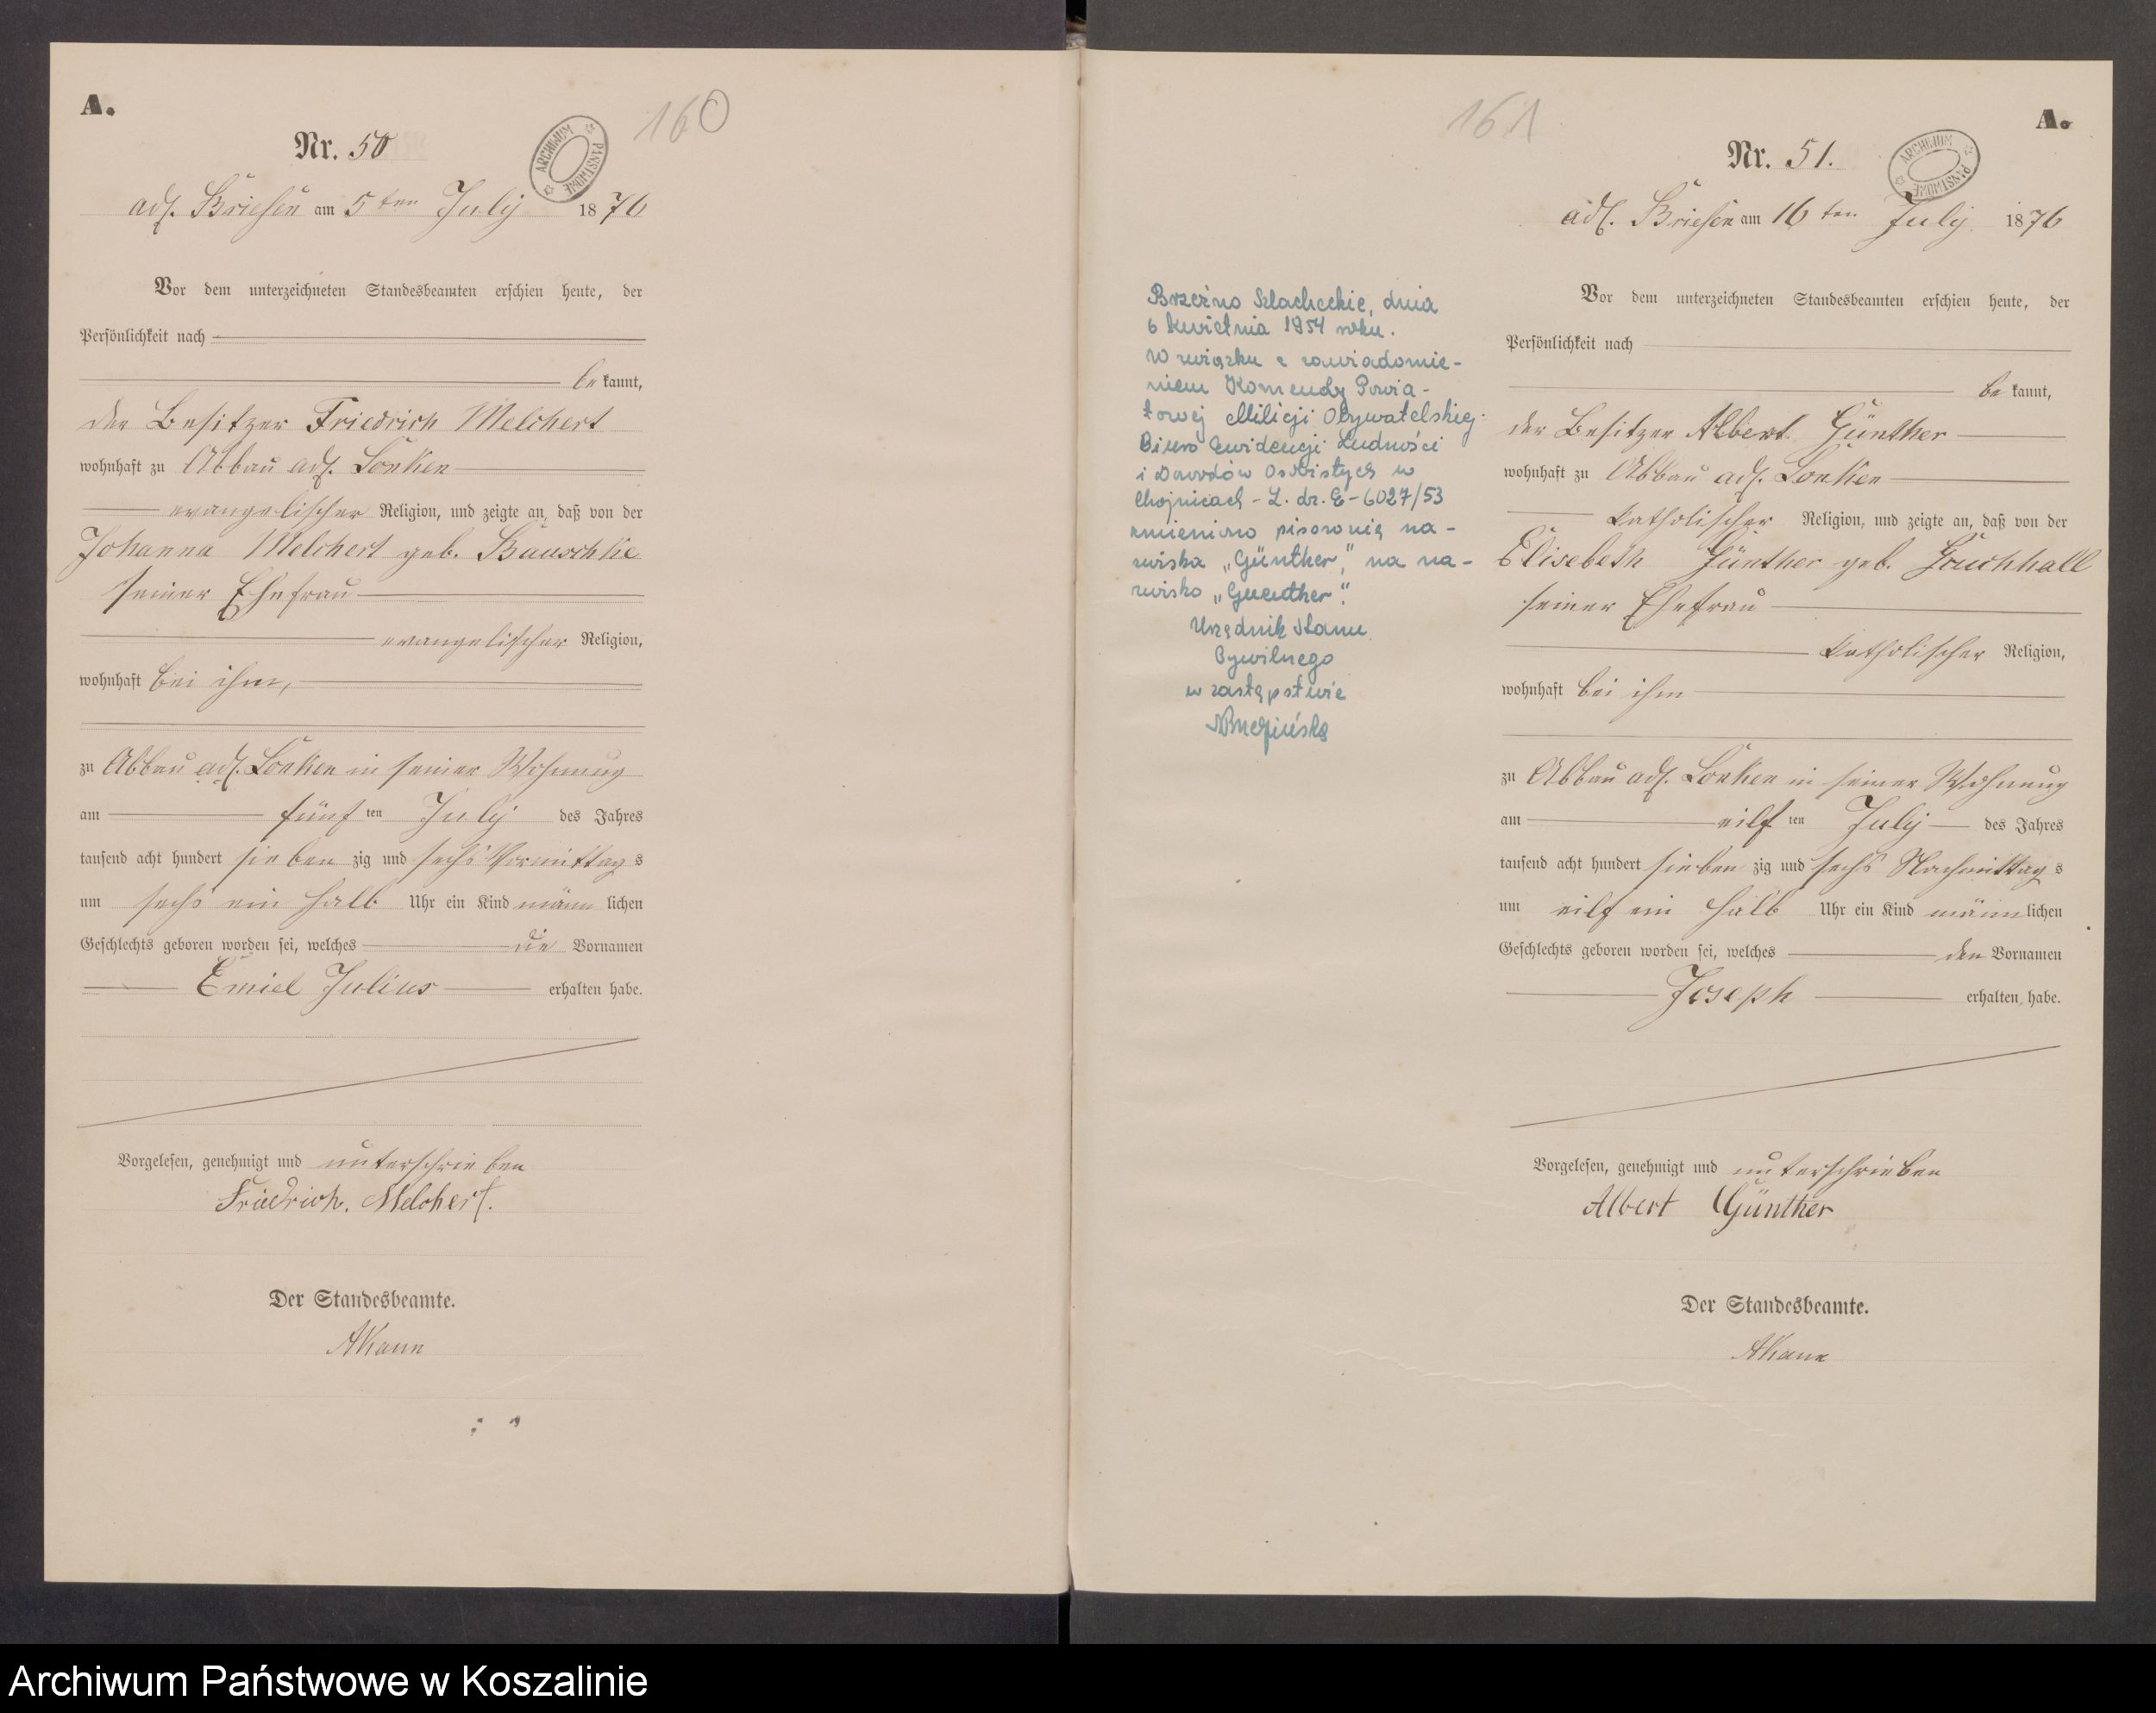 A.
160
Nr. 50
ARCHIWUM PAŃSTWOWE
adl. Briesen am 5ten July 1876
Vor dem unterzeichneten Standesbeamten erschien heute, der
Persönlichkeit nach
be kannt,
der Besitzer Friedrich Melchert
wohnhaft zu Abbau adl. Lonken
evangelischer Religion, und zeigte an, daß von der
Johanna Melchert geb. Bauschke
seiner Ehefrau
evangelischer Religion,
wohnhaft bei ihm,
zu Abbau adl. Lonken in seiner Wohnung
am fünf ten July des Jahres
tausend acht hundert sieben zig und sechs Vormittag s
um sechs ein halb Uhr ein Kind männ lichen
Geschlechts geboren worden sei, welches die Vornamen
Emiel Julius erhalten habe.
Vorgelesen, genehmigt und unterschrieben
Friedrich. Melchert.
Der Standesbeamte.
AKann
161
A.
Nr. 51.
ARCHIWUM PAŃSTWOWE
adl. Briesen am 16ten July 1876
Brzeźno Szlacheckie, dnia
6 kwietnia 1954 roku.
W związku z zawiadomie-
niem Komendy Powia-
towej Milicji Obywatelskiej
Biuro Ewidencji Ludności
i Dowodów Osobistych w
Chojnicach - L. dz. E-6027/53
zmieniono pisownię na-
zwiska „Günther", na na-
zwisko „Guenther".
Urzędnik Stanu
Cywilnego
w zastępstwie
Vor dem unterzeichneten Standesbeamten erschien heute, der
Persönlichkeit nach
be kannt,
der Besitzer Albert Günther
wohnhaft zu Abbau adl. Lonken
katholischer Religion, und zeigte an, daß von der
Elisebeth Günther geb.
seiner Ehefrau
katholischer Religion,
wohnhaft bei ihm
zu Abbau adl. Lonken in seiner Wohnung
am eilf ten July des Jahres
tausend acht hundert sieben zig und sechs Nachmittag s
um eilf ein halb Uhr ein Kind männ lichen
Geschlechts geboren worden sei, welches den Vornamen
Joseph erhalten habe.
Vorgelesen, genehmigt und unterschrieben
Albert Günther
Der Standesbeamte.
AKann
Archiwum Państwowe w Koszalinie